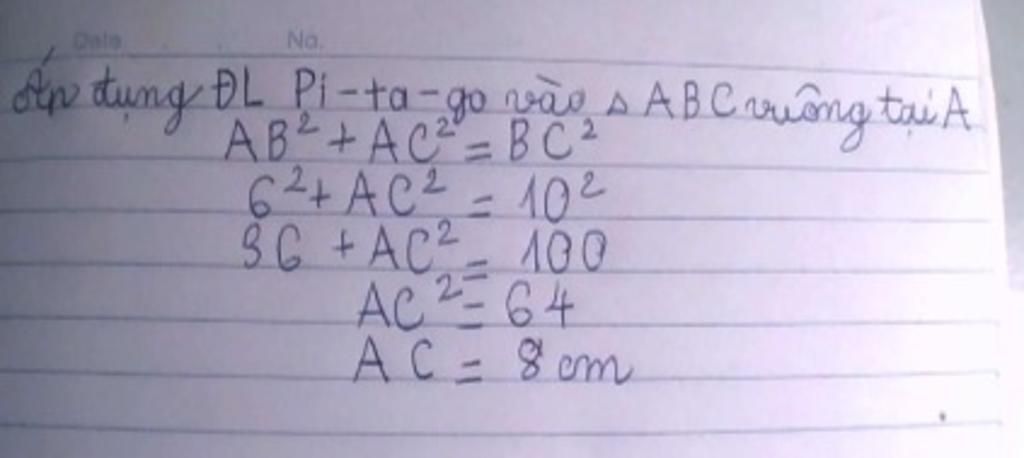 Date No.
Áp dụng ĐL Pi-ta-go vào △ ABC vuông tại A
AB² + AC² = BC²
6² + AC² = 10²
36 + AC² = 100
AC² = 64
AC = 8 cm